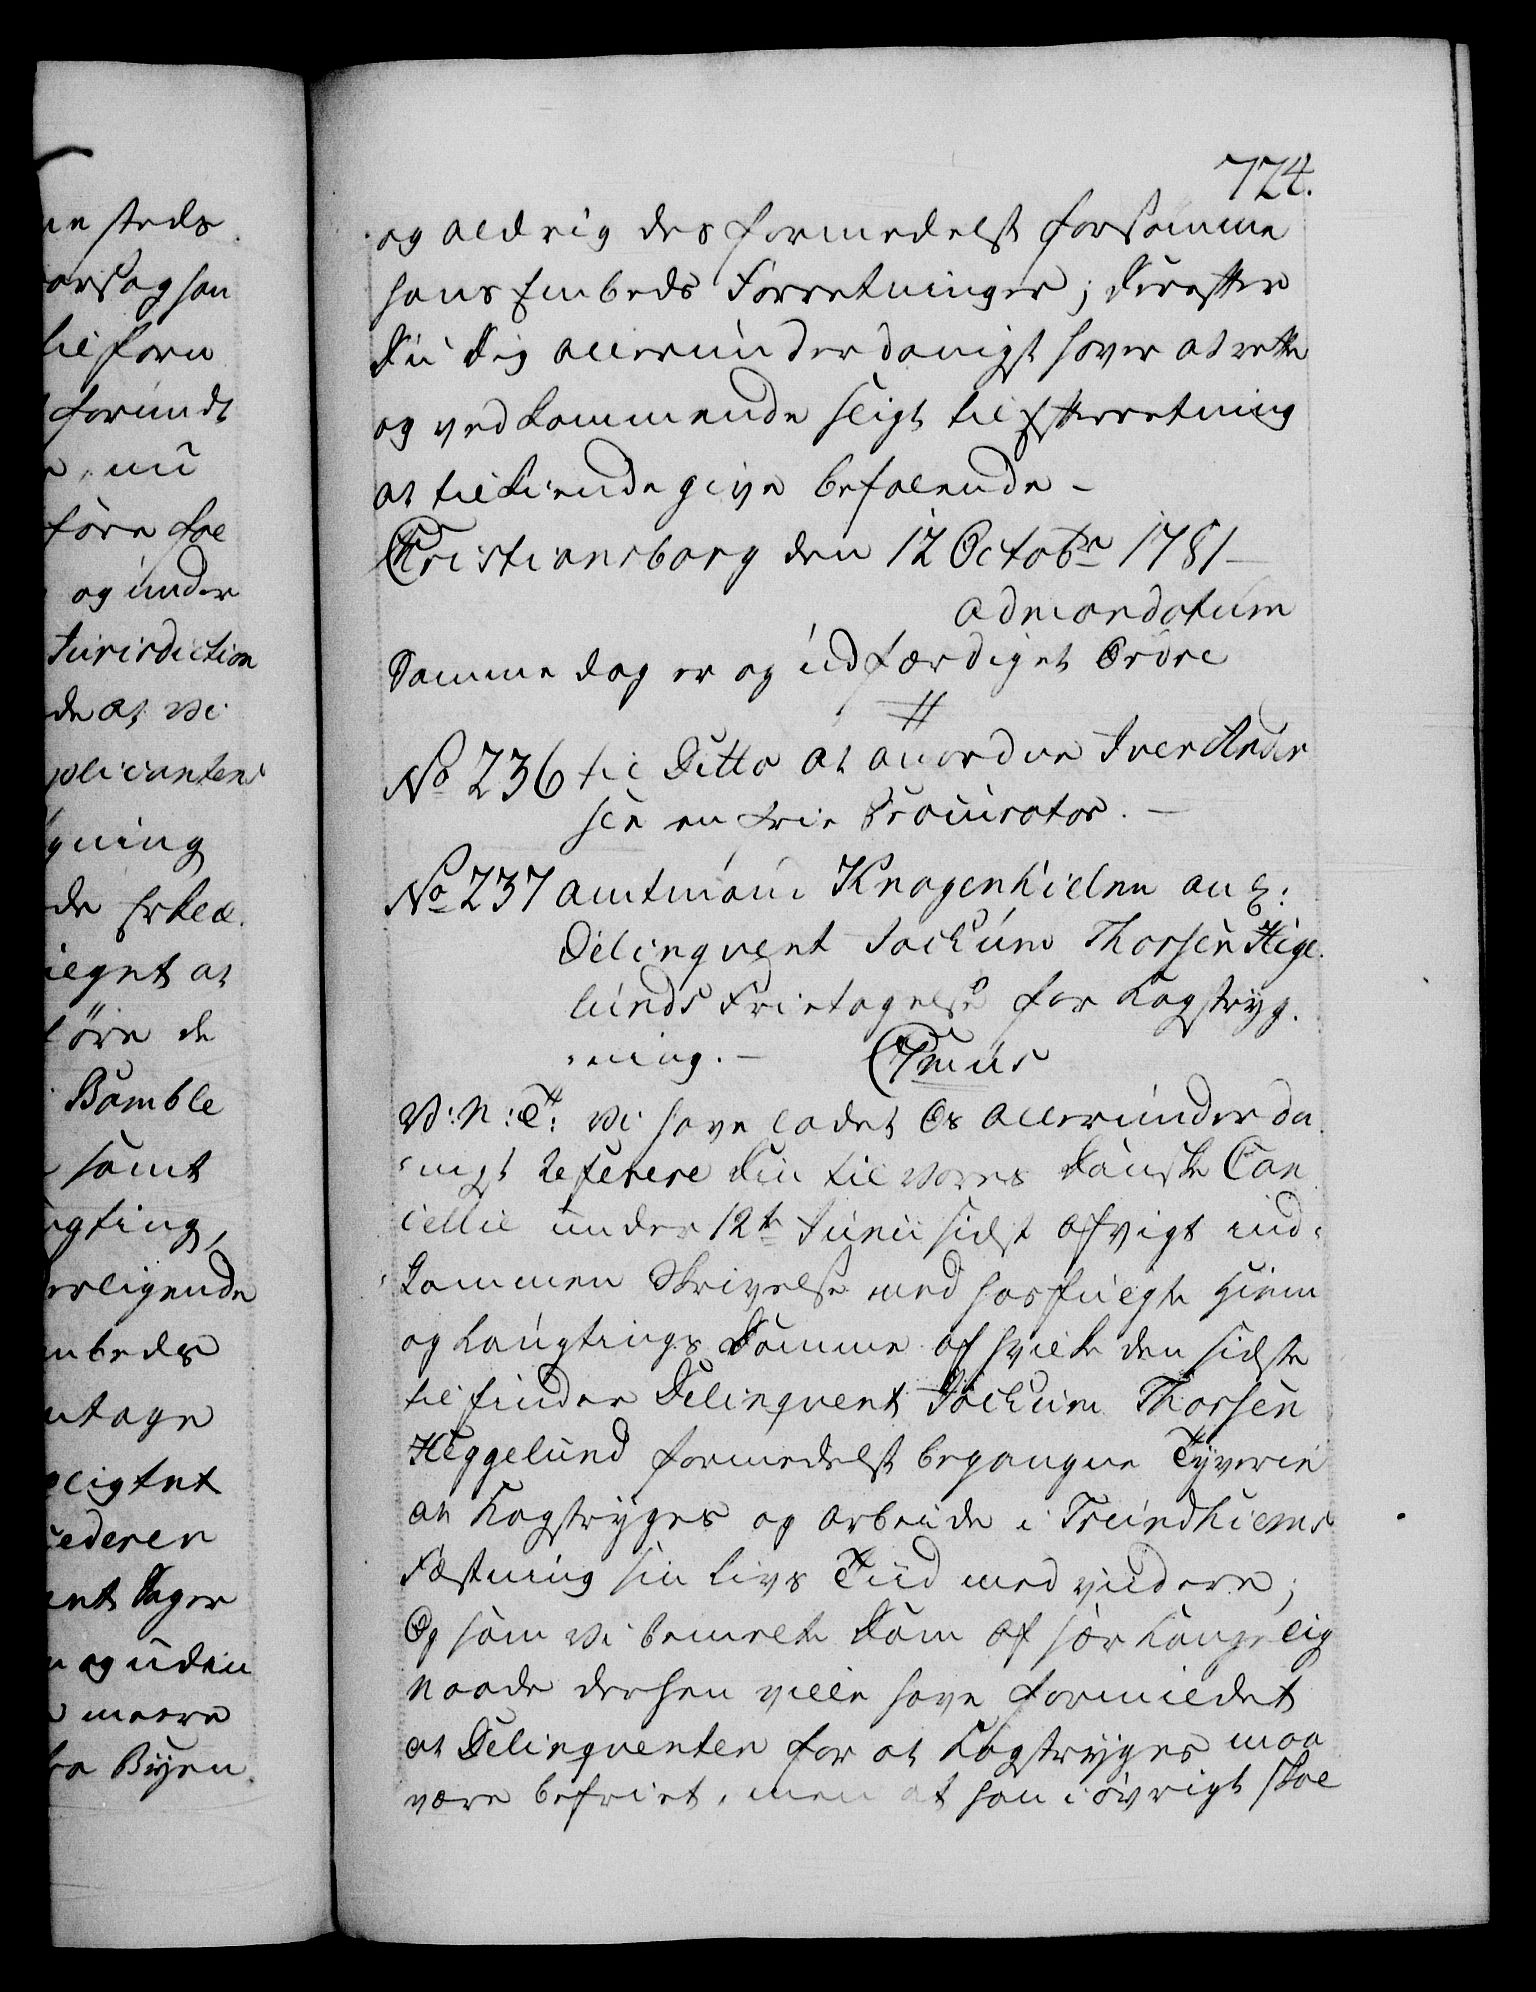 724.
og aldrig des formedelst forsømme
hans Embeds Forretninger; Derefter
Du Dig allerunderdanigst haver at rette
og vedkommende sligt til Efterretning
at tilkiendegive befalende –
Christiansborg den 12 Octobr 1781 –
ad mandatum
Samme dag er og udfærdiget Ordre
No 236 til Ditto at anordne Iver Ander
sen en frie Procurator. –
No 237 Amtmand Knagenhielm ang:
Delinqvent Jochum Thorsen Hige-
lunds Frietagelse for Kagstryg-
ning. –
V: N: T: Vi have ladet Os allerunderda
nigst referere Din til Vores Danske Can
cellie under 12te Junii sidst afvigt ind-
kommen Skrivelse med hosfuegte Hiem
og Laugtings Domme af hvilke den sidste
tilfinder Delinqvent Jochum Thorsen
Heggelund formedelst begangne Tyverie
at Kagstryges og arbeide i Trundhiems
Fæstning sin Livs Tiid med viidere;
Og som Vi bemelte Dom af sær Kongelig
Naade derhen ville have formildet
at Delinqventen for at Kagstryges maa
være befriet, men at han i øvrigt skal
ne steds
aarsag han
til forn
forundt
nu
føre skal
og under
Jurisdiction
de at Vi
plicantens
gning
de Erklæ-
egnet at
øre de
Bamble
samt
gting,
erligende
mbeds
ntage
pligtet
cederer
ent Sager
og uden
meere
Byen